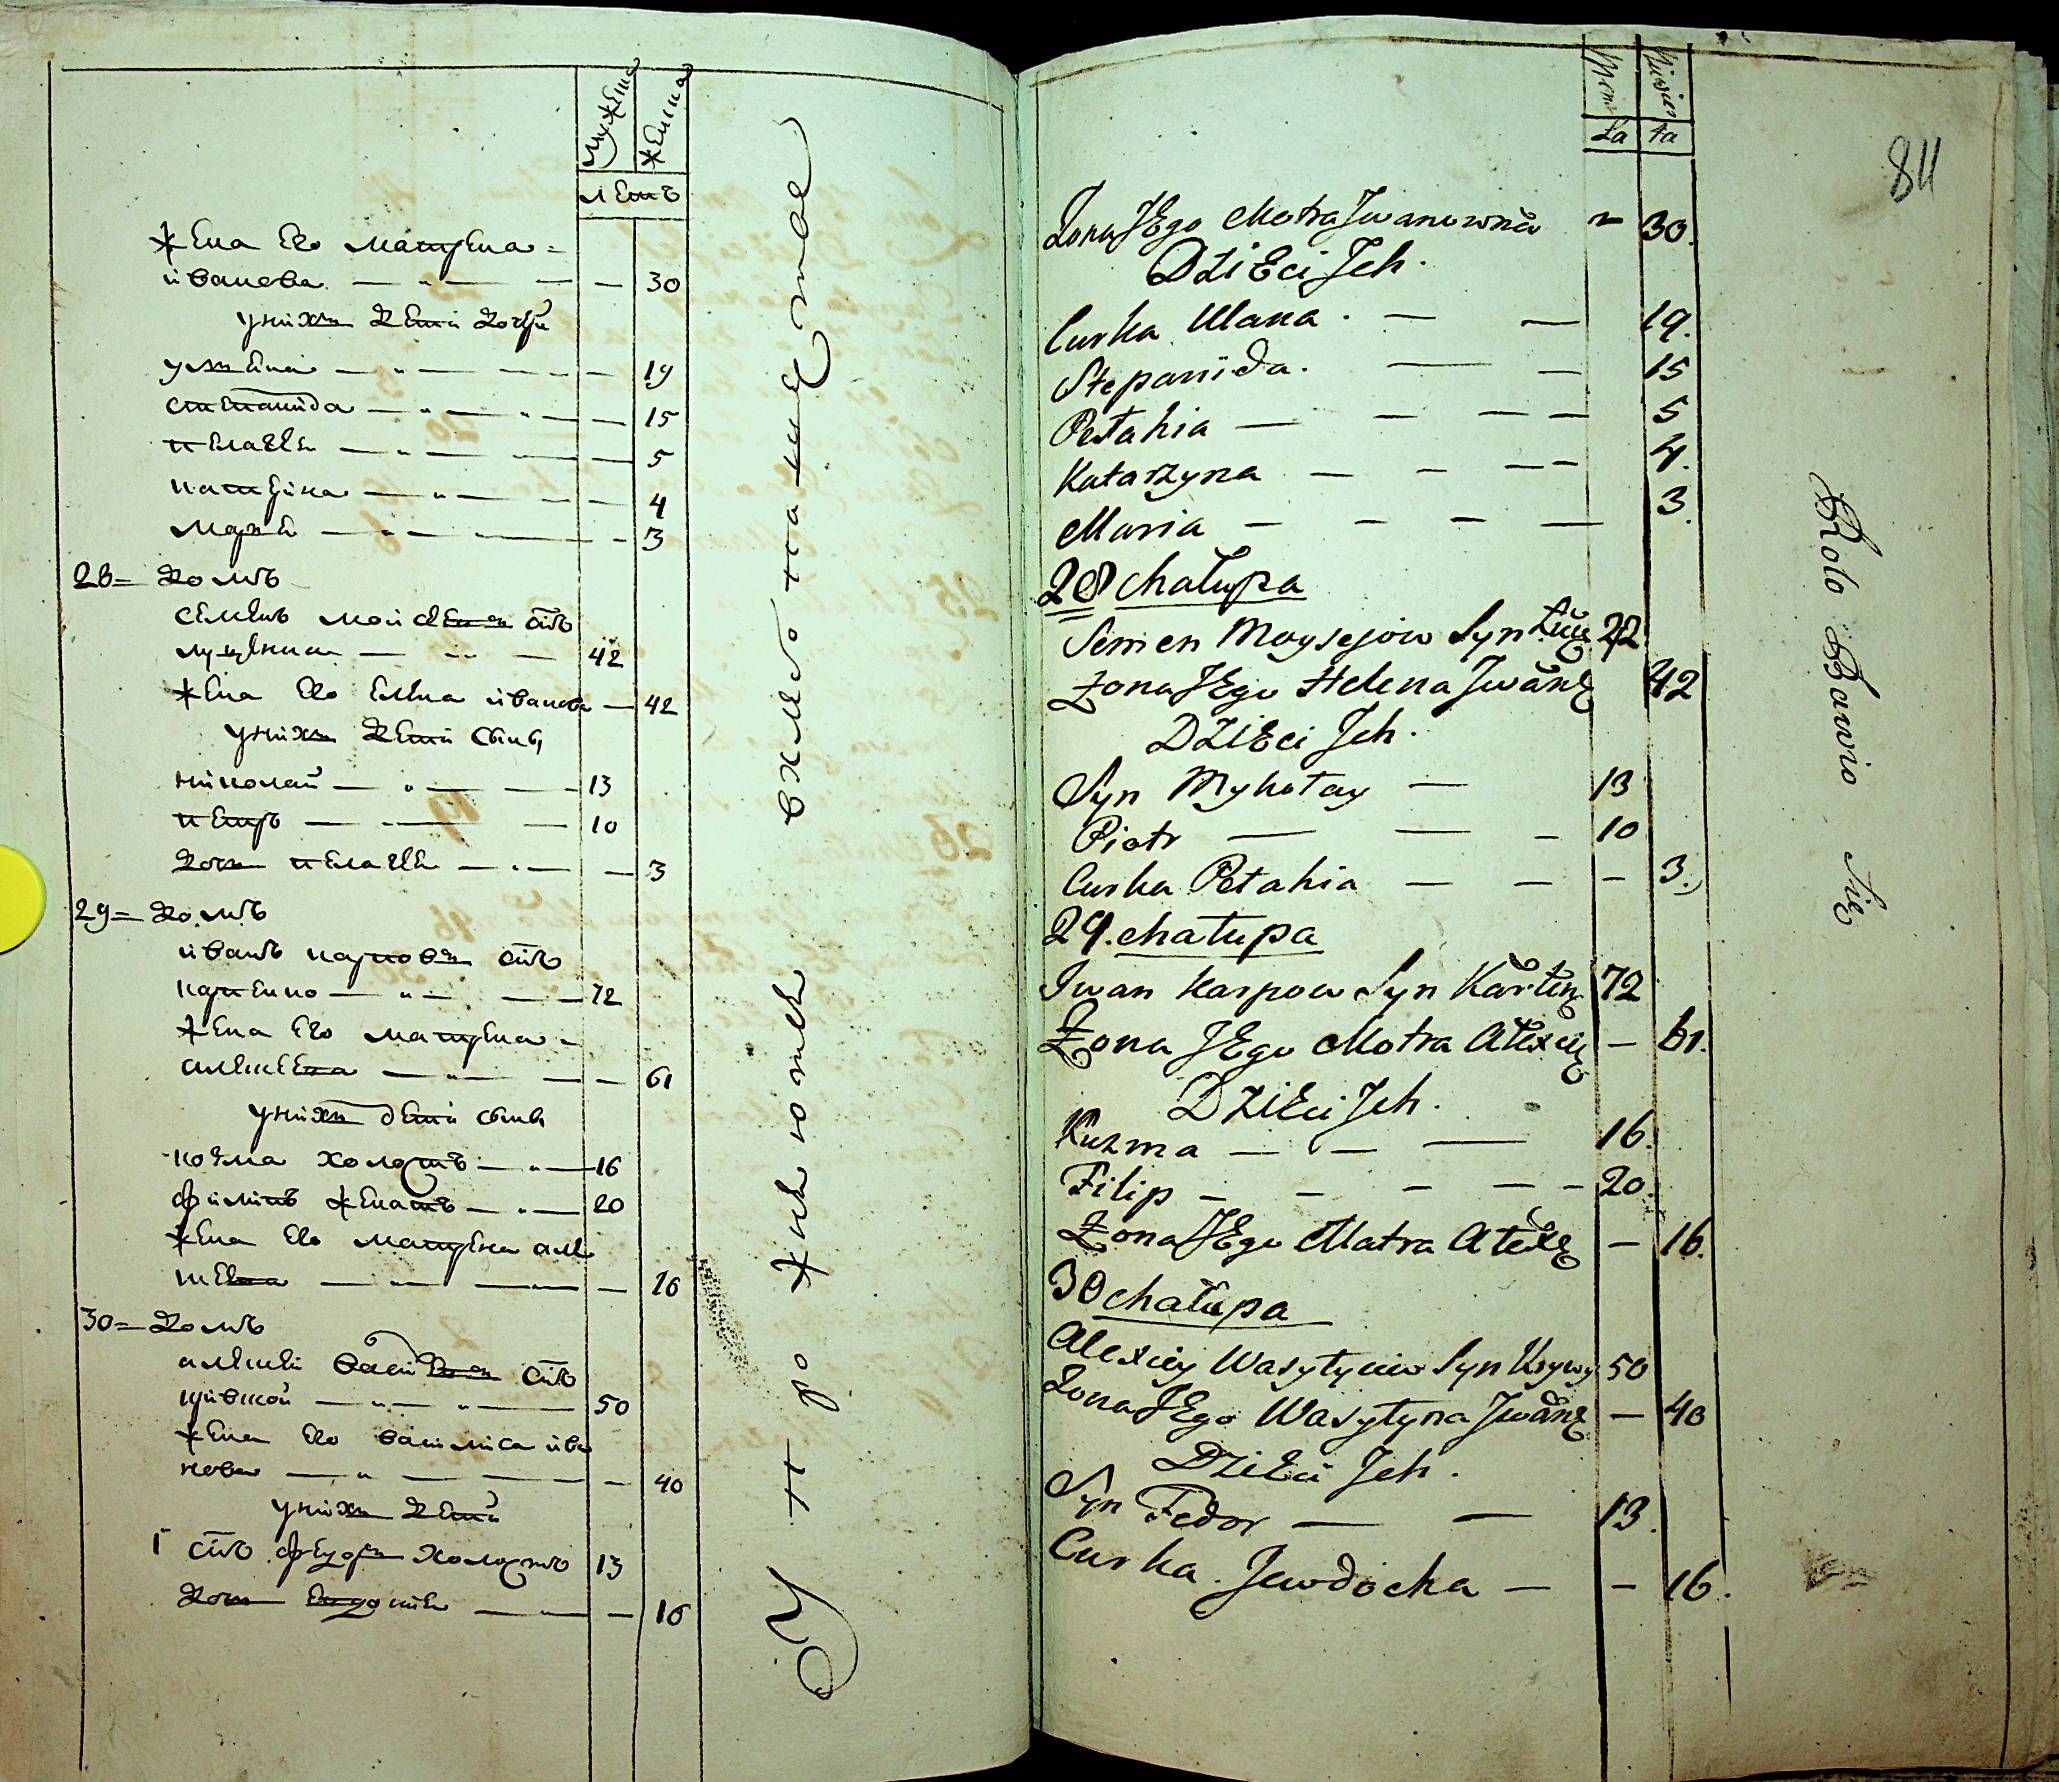 мужеска
женска
летъ
жена его матрена
иванова — „ — — — 30
у нихъ дети дочери
улияна — „ — — — 19
степанида — „ — „ — 15
пелагея — „ — — — 5
катерина — „ — — — 4
марья — „ — — — 3
28 = домъ
семенъ мойсеевъ сынъ
— „ — 42
жена его елена иванова — 42
у нихъ дети сыны
николай — „ — — 13
петръ — — — 10
дочь пелагея — „ — 3
29 = домъ
иванъ карповъ сынъ
карпенко — „ — — 72
жена его матрена
алексеева — „ — — 61
у нихъ дети сыны
козма холостъ — „ — 16
филипъ женатъ — „ — 20
жена его матрена але
ксеева — „ — — 16
30 = домъ
алексей васильевъ сынъ
кривкой — „ — „ — 50
жена его василиса ива
нова — „ — — — 40
у нихъ дети
сынъ федоръ холостъ 13
дочь евдокия — — 16
У
про
жителство
84
Męz
ka
Żeńs
ka
Żona JEgo Motra Jwanowna ~ 30.
DZiEci Jch.
Curka Ulana . — — 19.
Stepanida. — — 15
Pełahia — — — — 5
Katarzyna — — — — 4.
Maria — — — — 3.
28 chałupa
Semen Moysejow Syn 42
Żona JEgo Helena Jwan 42
DZiEci Jch.
Syn Mykołay — 13
Piotr — — — 10
Curka Pełahia — — — 3.
29. chałupa
Jwan Karpow Syn 72
Żona JEgo Motra Alexiey — 61.
DZiEci Jch.
Kuzma — — — 16.
Filip — — — — — 20.
Żona JEgo Matra Alexie — 16.
30 chałupa
Alexiey Wasylyciw Syn Krywy 50
Żona JEgo Wasylyna Jwan — 40
DZiEci Jch.
Syn Fedor — — 13.
Curka . Jewdocha — — 16.